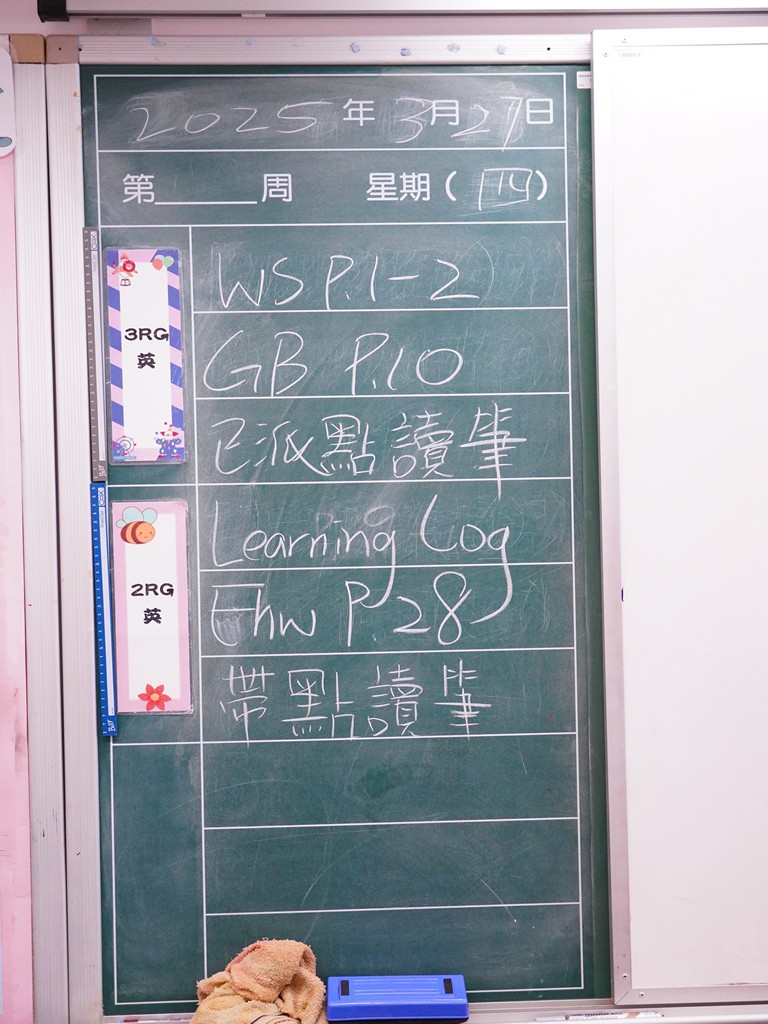 2025年3月27日
第______周 星期（四）
3RG
英
WS P.1-2
GB P.10
已派點讀筆
2RG
英
Learning Log
Ehw P.28
帶點讀筆